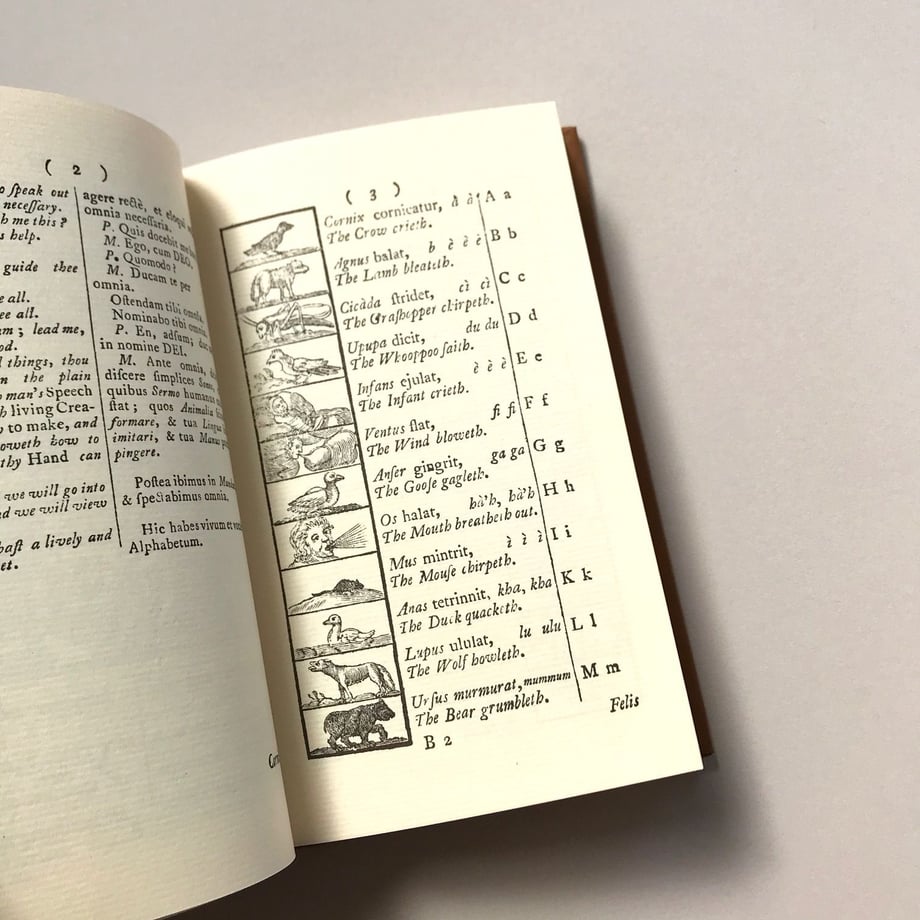 ( 2 )
ſpeak out
neceſſary.
me this ?
help.
guide thee
e all.
ee all.
; lead me,
od.
things, thou
the plain
man's Speech
living Crea-
to make, and
how to
thy Hand can
we will go into
we will view
haſt a lively and
et.
agere rectè, et eloqui
omnia neceſſaria.
P. Quis docebit me
M. Ego, cum DEO.
P. Quomodo ?
M. Ducam te per
omnia.
Oſtendam tibi omnia,
Nominabo tibi omnia.
P. En, adſum; duc
in nomine DEI.
M. Ante omnia,
diſcere ſimplices
quibus Sermo humanus
ſtat ; quos Animalia
formare, & tua Lingua
imitari, & tua Manus
pingere.
Poſtea ibimus in
& ſpectabimus omnia.
Hic habes vivum et
Alphabetum.
( 3 )
Cornix cornicatur, à à A a
The Crow crieth.
Agnus balat, b è è è B b
The Lamb bleateth.
Cicàda ſtridet, cì cì C c
The Graſhopper chirpeth.
Upupa dicit, du du D d
The Whooppoo ſaith.
Infans ejulat, è è è E e
The Infant crieth.
Ventus flat, fi fi F f
The Wind bloweth.
Anſer gingrit, ga ga G g
The Gooſe gagleth.
Os halat, hà'h, hà'h H h
The Mouth breatheth out.
Mus mintrit, ì ì ì I i
The Mouſe chirpeth.
Anas tetrinnit, kha, kha K k
The Duck quacketh.
Lupus ululat, lu ulu L l
The Wolf howleth.
Urſus murmurat, mummum M m
The Bear grumbleth.
B 2 Felis